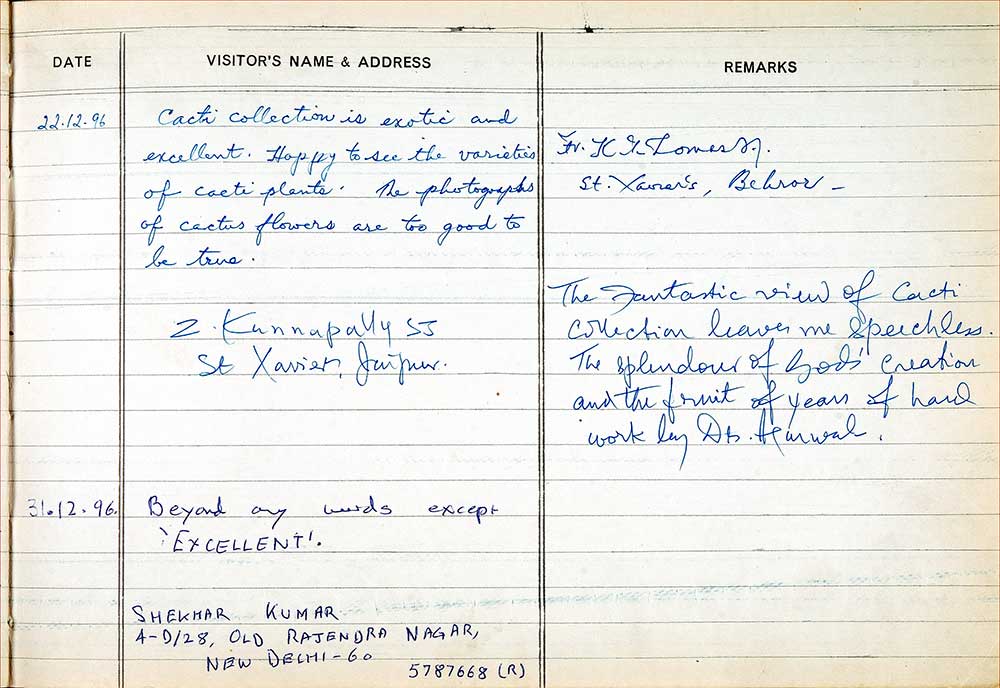 DATE
VISITOR'S NAME & ADDRESS
REMARKS
22.12.96
Cacti collection is exotic and
excellent. Happy to see the varieties
of cacti plants. The photographs
of cactus flowers are too good to
be true.
Fr. K
St. Xavier's, Behror -
Z. Kannapally SJ
St Xaviers, Jaipur.
The Fantastic view of Cacti
Collection leaves me speechless.
The splendour of God's Creation
and the fruit of years of hard
work by
31.12.96.
Beyond any words except
'EXCELLENT'.
SHEKHAR KUMAR
4-D/28, OLD RAJENDRA NAGAR,
NEW DELHI-60
5787668 (R)